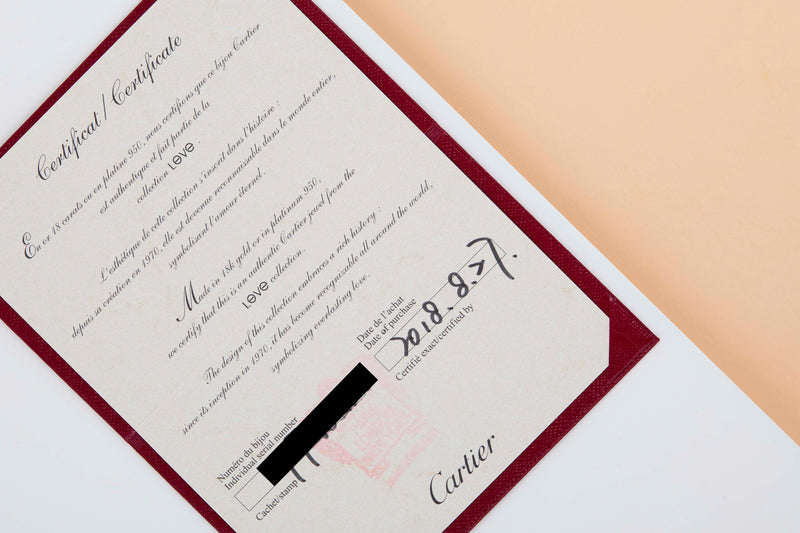 Certificat / Certificate
En or 18 carats ou en platine 950, nous certifions que ce bijou Cartier
est authentique et fait partie de la
collection LOVE.
L'esthétique de cette collection s'inscrit dans l'histoire :
depuis sa création en 1970, elle est devenue reconnaissable dans le monde entier,
symbolisant l'amour éternel.
Made in 18k gold or in platinum 950,
we certify that this is an authentic Cartier jewel from the
LOVE collection.
The design of this collection embraces a rich history :
since its inception in 1970, it has become recognizable all around the world,
symbolizing everlasting love.
Numéro du bijou
Individual serial number
Cachet/stamp
Date de l'achat
Date of purchase
2018.8.27.
Certifié exact/certified by
Cartier